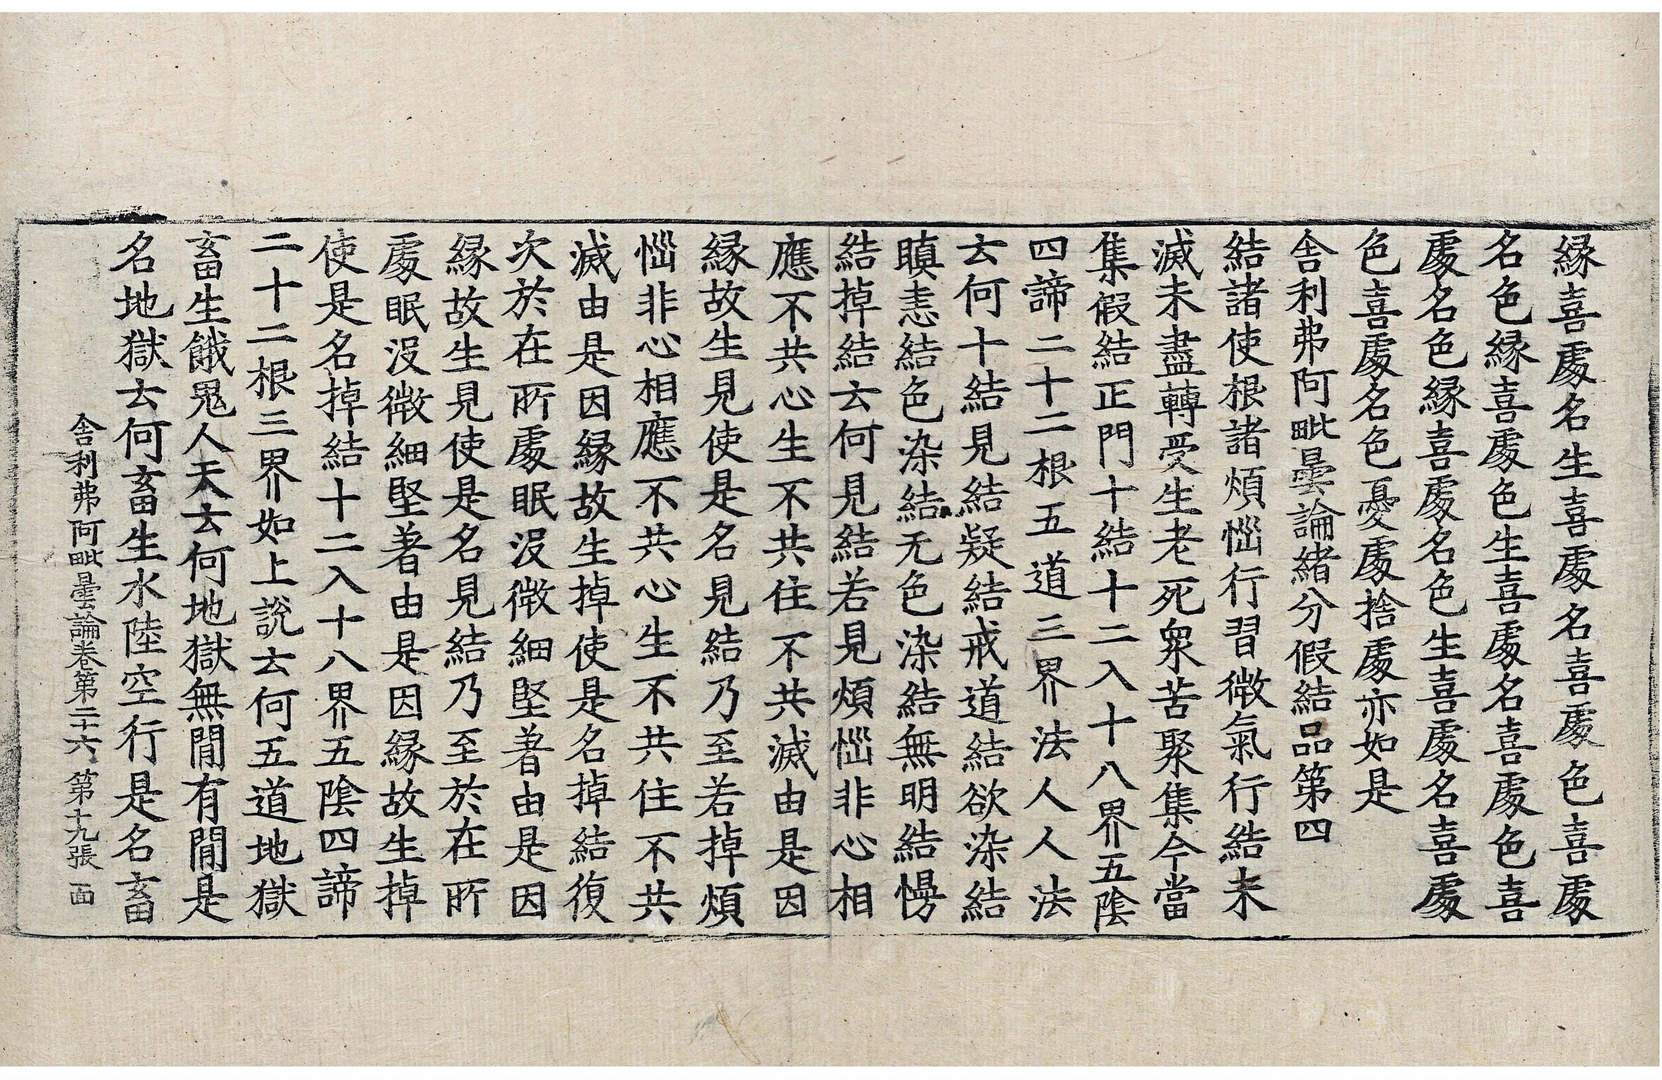 縁喜處名生喜處名喜處色喜處
名色縁喜處色生喜處名喜處色喜
處名色縁喜處名色生喜處名喜處
色喜處名色憂處捨處亦如是
舎利弗阿毗曇論緒分假結品第四
結諸使根諸煩惱行習微氣行結未
滅未盡轉受生老死衆苦聚集今當
集假結正門十結十二入十八界五隂
四諦二十二根五道三界法人人法
云何十結見結疑結戒道結欲染結
瞋恚結色染結无色染結無明結慢
結掉結云何見結若見煩惱非心相
應不共心生不共住不共滅由是因
縁故生見使是名見結乃至若掉煩
惱非心相應不共心生不共住不共
滅由是因縁故生掉使是名掉結復
次於在所處眠沒微細堅著由是因
縁故生見使是名見結乃至於在所
處眠沒微細堅著由是因縁故生掉
使是名掉結十二入十八界五隂四諦
二十二根三界如上說云何五道地獄
畜生餓鬼人天云何地獄無間有間是
名地獄云何畜生水陸空行是名畜
舎利弗阿毗曇論卷第二十六 第十九張 面